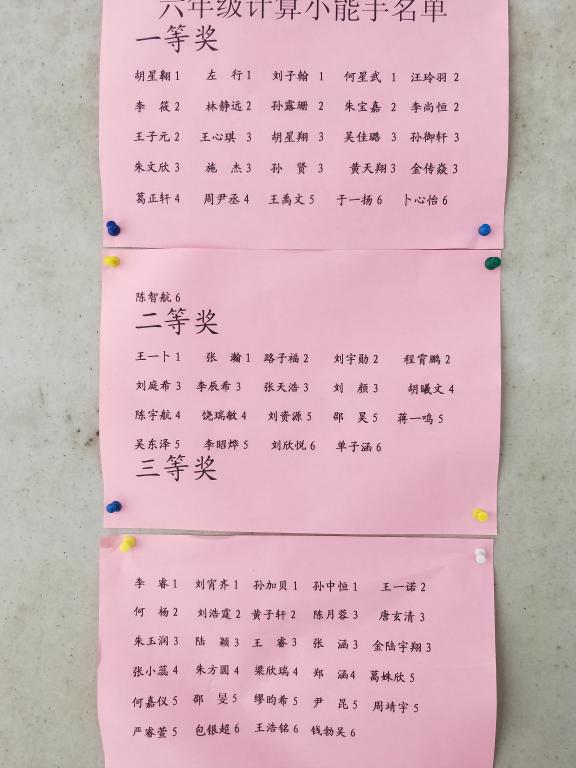 六年级计算小能手名单
一等奖
胡星翱 1 左 行 1 刘子翰 1 何星武 1 汪玲羽 2
李 筱 2 林静远 2 孙露珊 2 朱宝嘉 2 李尚恒 2
王子元 2 王心琪 3 胡星翔 3 吴佳璐 3 孙御轩 3
朱文欣 3 施 杰 3 孙 贤 3 黄天翔 3 金传焱 3
葛正轩 4 周尹丞 4 王禹文 5 于一扬 6 卜心怡 6
陈智航 6
二等奖
王一卜 1 张 瀚 1 路子福 2 刘宇勋 2 程霄鹏 2
刘庭希 3 李辰希 3 张天浩 3 刘 颜 3 胡曦文 4
陈宇航 4 饶瑞敏 4 刘资源 5 邵 昊 5 蒋一鸣 5
吴东泽 5 李昭烨 5 刘欣悦 6 单子涵 6
三等奖
李 睿 1 刘宵齐 1 孙加贝 1 孙中恒 1 王一诺 2
何 杨 2 刘浩霆 2 黄子轩 2 陈月蓉 3 唐玄清 3
朱玉润 3 陆 颖 3 王 睿 3 张 涵 3 金陆宇翔 3
张小蕊 4 朱方圆 4 梁欣瑞 4 郑 涵 4 葛姝欣 5
何嘉仪 5 邵 旻 5 缪昀希 5 尹 昆 5 周靖宇 5
严睿萱 5 包银超 6 王浩铭 6 钱勃吴 6